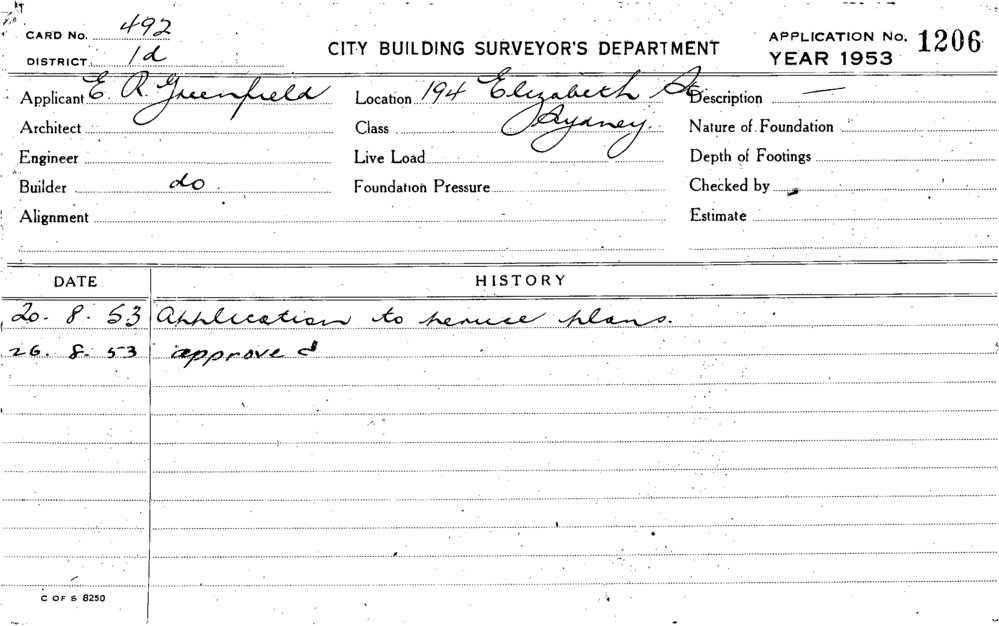 CARD No. 492
DISTRICT 1d
CITY BUILDING SURVEYOR'S DEPARTMENT
APPLICATION No. 1206
YEAR 1953
Applicant E. R. Greenfield Location 194 Elizabeth St Description —
Architect Class Sydney. Nature of Foundation
Engineer Live Load Depth of Footings
Builder do Foundation Pressure Checked by
Alignment Estimate
DATE HISTORY
20. 8. 53 Application to peruse plans.
26. 8. 53 approved
C OF S 8250